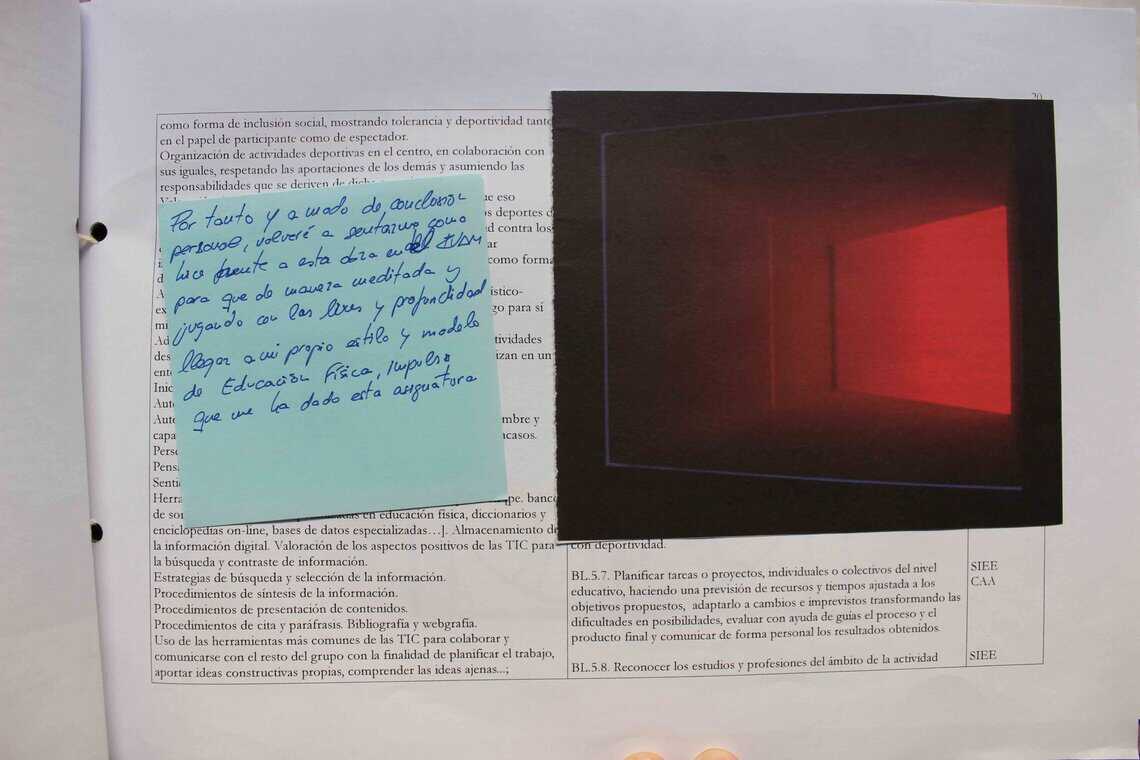 20
como forma de inclusión social, mostrando tolerancia y deportividad tanto
en el papel de participante como de espectador.
Organización de actividades deportivas en el centro, en colaboración con
sus iguales, respetando las aportaciones de los demás y asumiendo las
responsabilidades que se deriven de
ue eso
os deportes d
d contra los
ar
como forma
ístico-
go para sí
tividades
izan en un
mbre y
casos.
Por tanto y a modo de conclusión
personal, volveré a sentarme como
hice frente a esta obra en el IVAM
para que de manera meditada y
jugando con las luces y profundidad
llegar a mi propio estilo y modelo
de Educación Física, Impulso
que me ha dado esta asignatura
Herra pe. banco
de so en educación física, diccionarios y
enciclopedias on-line, bases de datos especializadas…]. Almacenamiento de
la información digital. Valoración de los aspectos positivos de las TIC para
la búsqueda y contraste de información.
Estrategias de búsqueda y selección de la información.
Procedimientos de síntesis de la información.
Procedimientos de presentación de contenidos.
Procedimientos de cita y paráfrasis. Bibliografía y webgrafía.
Uso de las herramientas más comunes de las TIC para colaborar y
comunicarse con el resto del grupo con la finalidad de planificar el trabajo,
aportar ideas constructivas propias, comprender las ideas ajenas...;
con deportividad.
BL.5.7. Planificar tareas o proyectos, individuales o colectivos del nivel
educativo, haciendo una previsión de recursos y tiempos ajustada a los
objetivos propuestos, adaptarlo a cambios e imprevistos transformando las
dificultades en posibilidades, evaluar con ayuda de guías el proceso y el
producto final y comunicar de forma personal los resultados obtenidos.
BL.5.8. Reconocer los estudios y profesiones del ámbito de la actividad
SIEE
CAA
SIEE